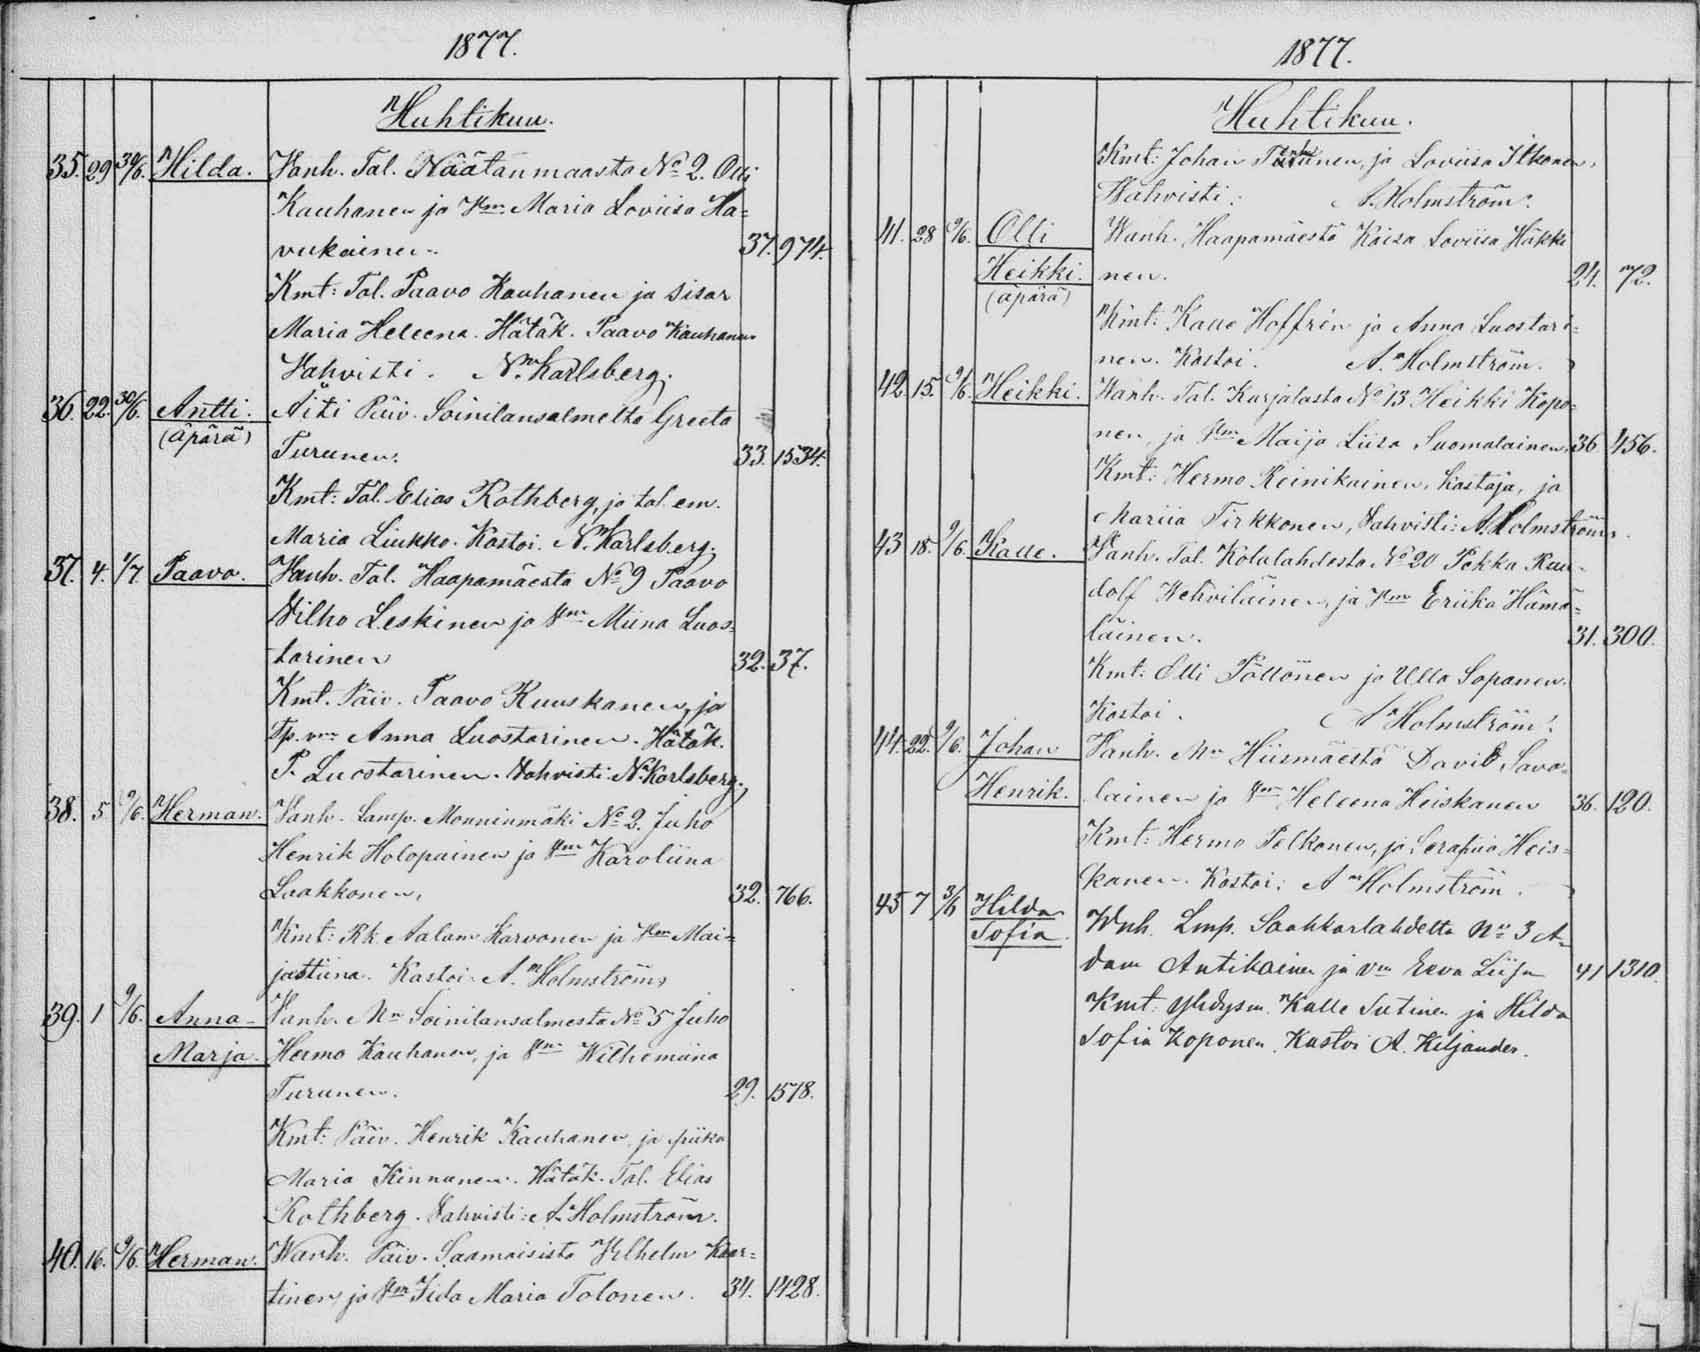 1877.
Huhtikuu.
35. 29 30/6. Hilda. Vanh. Tal. Näätänmaasta No 2. Olli
Kauhanen ja Vm Maria Loviisa Ha=
vukainen. 37. 974.
Kmt: Tal. Paavo Kauhanen ja sisar
Maria Heleena. Hätäk. Paavo Kauhanen
Vahvisti. N. Karlsberg.
36. 22. 30/6. Antti. Äiti Päiv. Soinilansalmelta Greeta
(äpärä) Turunen. 33. 1534.
Kmt: Tal. Elias Rothberg, ja tal. em.
Maria Liukko. Kastoi. N. Karlsberg.
37. 4. 1/7 Paavo. Vanh. Tal. Haapamäestä No 9 Paavo
Vilho Leskinen ja Vm Miina Luos=
tarinen 32. 37.
Kmt. Päiv. Paavo Ruuskanen, ja
Tp. vm Anna Luostarinen. Hätäk.
P. Luostarinen. Vahvisti: N. Karlsberg.
38. 5 9/6. Herman. Vanh. Lamp. Monninmäki No 2. Juho
Henrik Holopainen ja Vm Karoliina
Laakkonen, 32. 766.
Kmt: Rk. Aalam Karvonen ja Vm Mai=
jastiina. Kastoi A. Holmström,
39. 1 9/6. Anna- Vanh. Mn Soinilansalmesta No 5 Juho
Marja. Hermo Kauhanen, ja Vm Wilhemiina
Turunen. 29. 1578.
Kmt: Päiv. Henrik Kauhanen, ja piika
Maria Kinnunen. Hätäk. Tal. Elias
Rothberg. Vahvisti: A. Holmström.
40. 16. 9/6. Herman. Wanh. Päiv. Saamaisista Vilhelm Kaar=
tinen, ja Vm Iida Maria Tolonen. 34. 1428.
1877.
Huhtikuu.
Kmt: Johan ja Loviisa Itkonen,
Wahvisti: A. Holmström.
41. 28 9/6. Olli Wanh. Haapamäestä Kaisa Loviisa Häkki
Heikki. nen. 24. 72.
(äpärä)
Kmt: Kalle Hoffrén ja Anna Luostari=
nen. Kastoi. A. Holmström.
42. 15. 9/6. Heikki. Wanh. Tal. Karjalasta No 13 Heikki Kopo=
nen, ja Vm Maija Liisa Suomalainen, 36 456.
Kmt: Hermo Reinikainen, Kastaja, ja
Mariia Tirkkonen, Vahvisti: A. Holmström.
43 18. 9/6. Kalle. Vanh. Tal. Kolulahdesta No 20 Pekka Ruu=
dolf Wehviläinen, ja Vm Eriika Hämä=
läinen. 31. 300.
Kmt: Olli Pöllönen ja Ulla Sopanen.
Kastoi. A. Holmström.
44. 22. 9/6. Johan Vanh. Mn Hiismäestä David Savo=
Henrik. lainen ja Vm Heleena Heiskanen 36. 120.
Kmt: Hermo Pelkonen, ja Serafiia Heis=
kanen. Kastoi: A Holmström.
45 7 3/6 Hilda
Sofia. Wnh. Lmp. Saahkarlahdelta No 3 A=
dam Antikainen ja vm Eeva Liisa 41 1310
Kmt: Yhdysm. Kalle Sutinen ja Hilda
Sofia Koponen. Kastoi A. Kiljander.